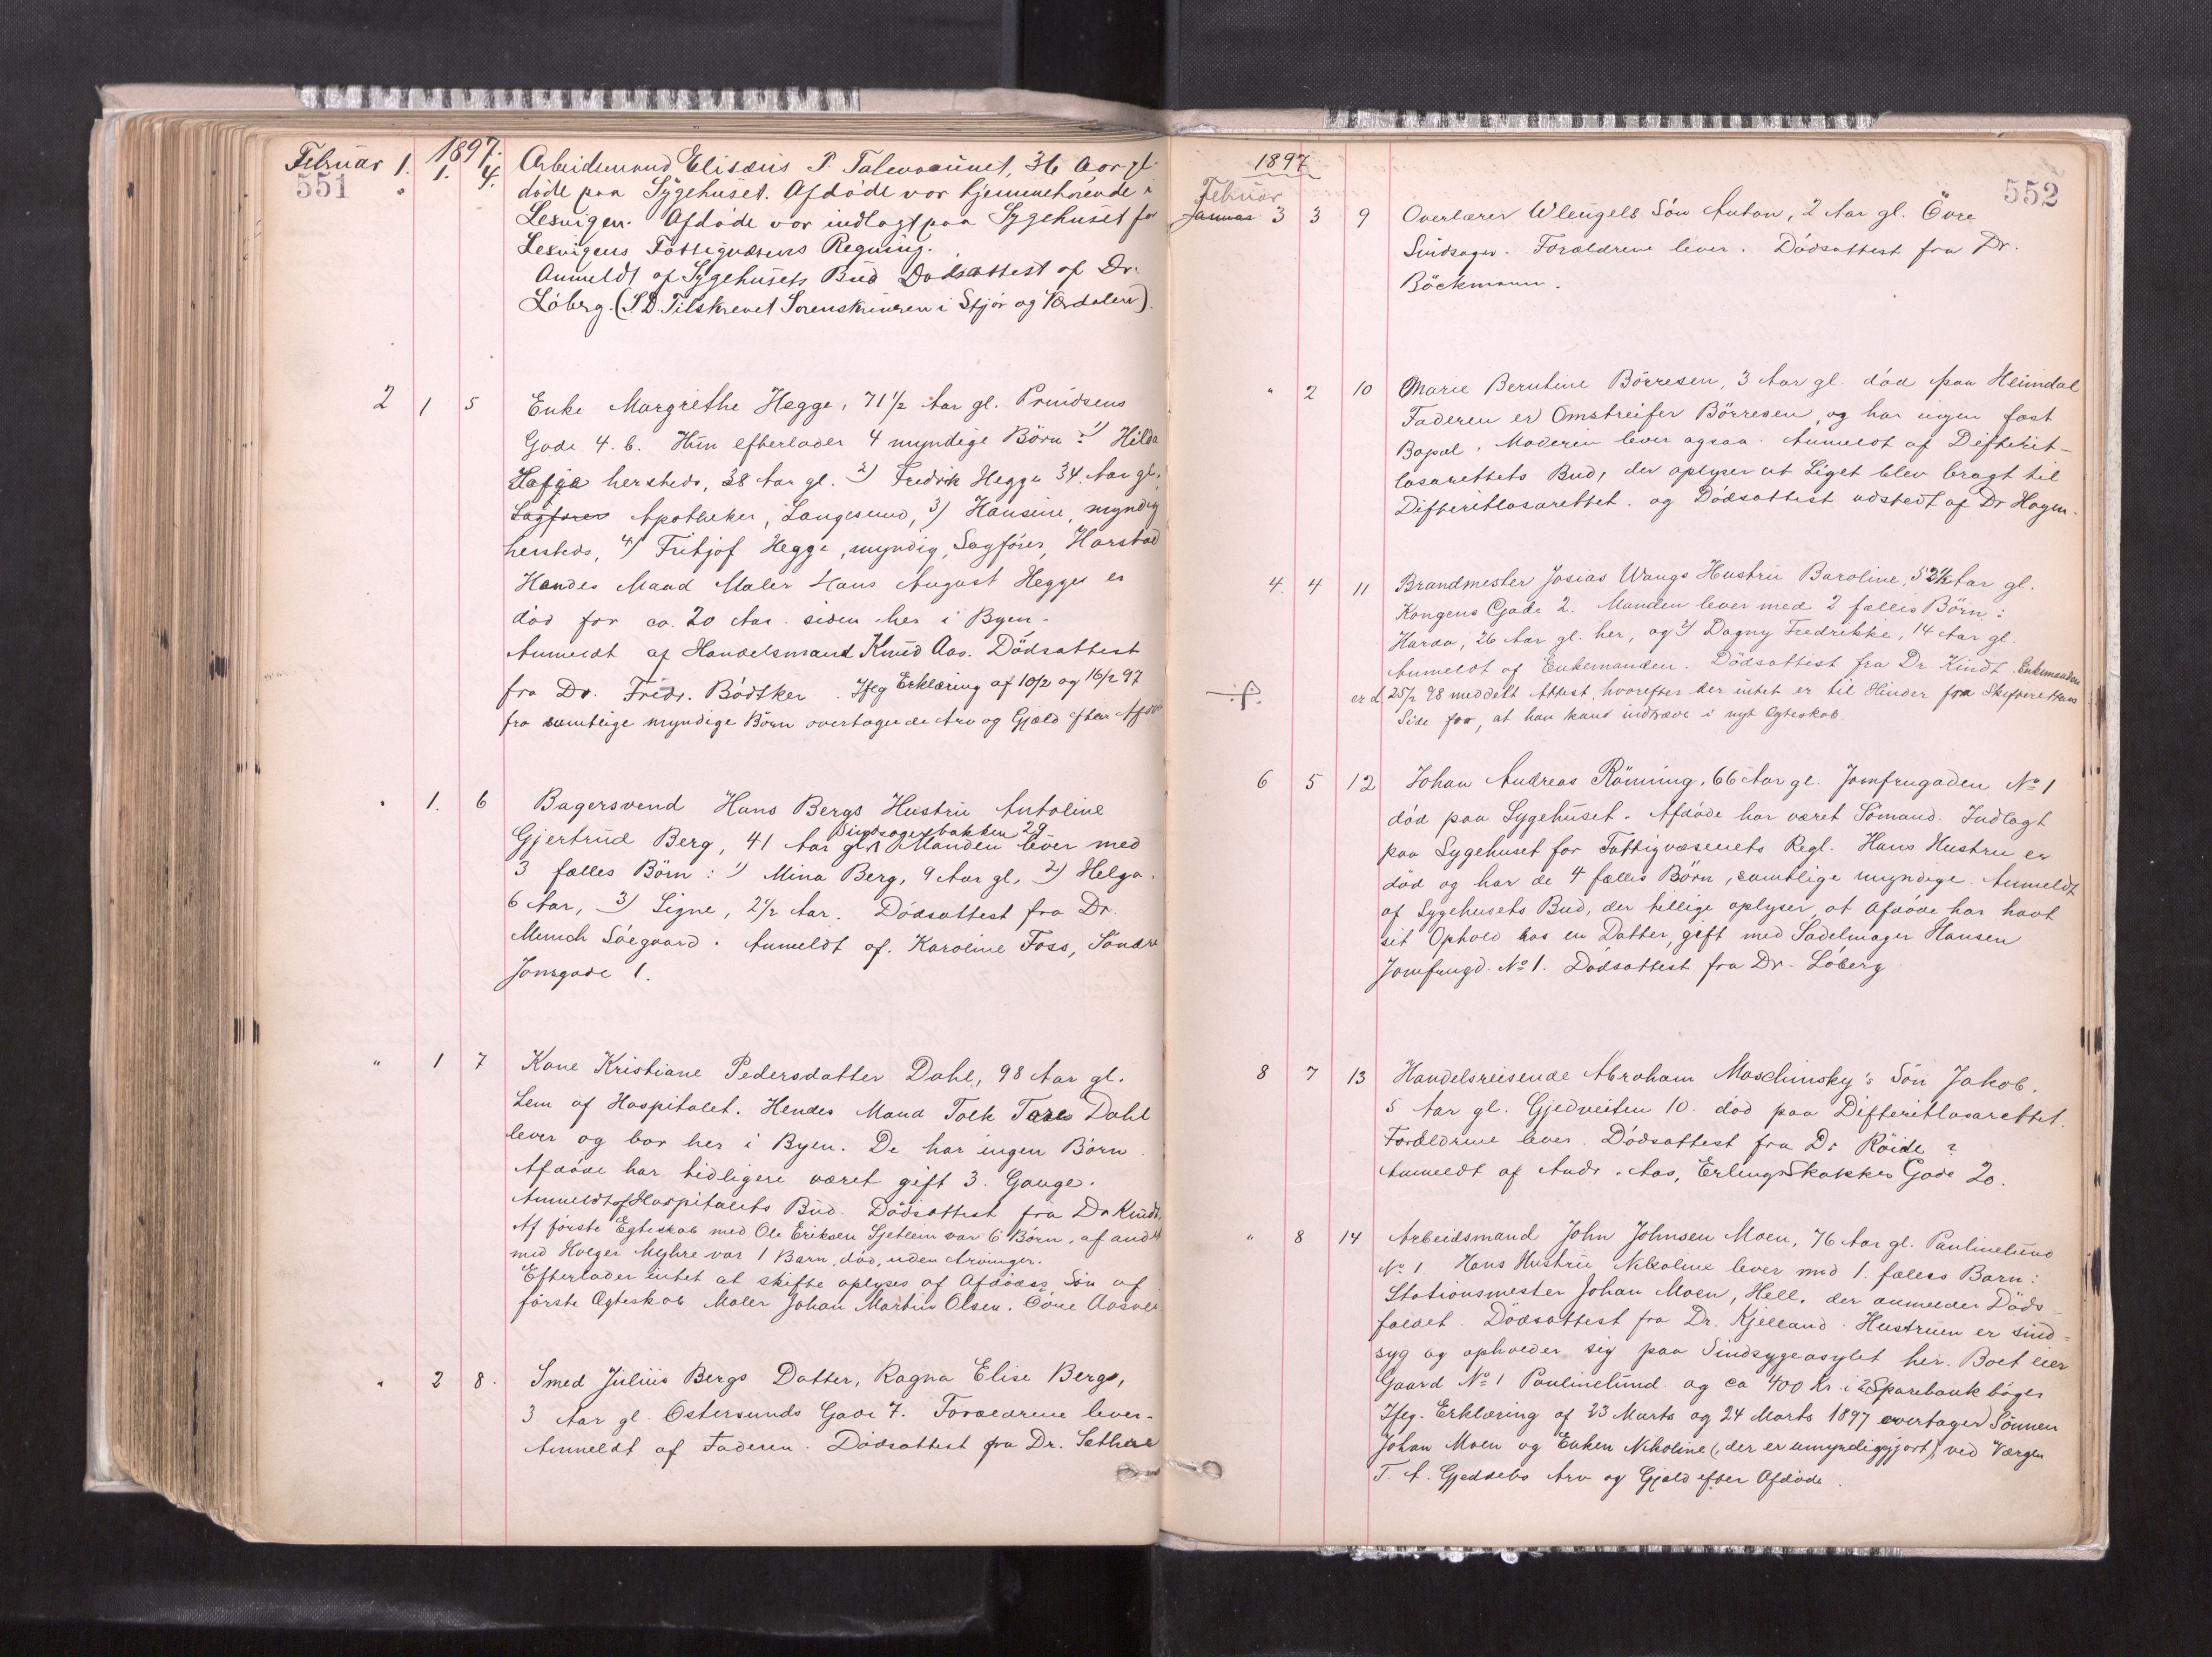 Februar 1. 1897.
551
1. 4. Arbeidsmand Elisæus P. 36 Aar gl.
döde paa Sygehuset. Afdöde var hjemmehörende i
Lexvigen. Afdöde var indlagt paa Sygehuset for
Lexvigens Fattigvæsens Regning.
Anmeldt af Sygehusets Bud Dødsattest af Dr.
Löberg. (S.D. Tilskrevet Sorenskriveren i Stjør og Værdalen).
2 1 5 Enke Margrethe Hegge, 71 1/2 Aar gl. Prindsens
Gade 4. b. Hun efterlader 4 myndige Börn: 1) Hilda
hersteds, 38 Aar gl. 2) Fredrik Hegge 34 Aar gl.
Sagförer Apotheker, Langesund, 3) Hansine, myndig
hersteds, 4) Fritjof Hegge, myndig, Sagförer, Harstad
Hendes Mand Maler Hans August Hegge er
död for ca. 20 Aar siden her i Byen.
Anmeldt af Handelsmand Knud Aas. Dödsattest
fra Dr. Fredr. Bödtker. Ifölg Erklæring af 10/2 og 16/2 97
fra samtlige myndige Börn overtager de Arv og Gjæld efter Afdöde
" 1. 6 Bagersvend Hans Bergs Hustru Antoline
Sindsagerbakken 29
Gjertrud Berg, 41 Aar gl. Manden lever med
3 fælles Börn: 1) Mina Berg, 9 Aar gl, 2) Helga
6 Aar, 3) Signe, 2 1/2 Aar. Dödsattest fra Dr.
Munch Söegaard. Anmeldt af. Karoline Foss, Söndre
Jonsgade 1.
" 1 7 Kone Kristiane Pedersdatter Dahl, 98 Aar gl.
Lem af Hospitalet. Hendes Mand Tolk Dahl
lever og bor her i Byen. De har ingen Börn.
Afdöde har tidligere været gift 3. Gange.
Anmeldt af Hospitalets Bud. Dödsattest fra Dr Kindt.
Af förste Egteskab med Ole Eriksen Sjetlein var 6 Börn, af andet
med Holger Myhre var 1 Barn, död, uden Arvinger.
Efterlader intet at skifte oplyses af Afdödes Sön af
förste Ægteskab Maler Johan Martin Olsen.
" 2 8. Smed Julius Bergs Datter, Ragna Elise Berg,
3 Aar gl. Östersunds Gade 7. Forældrene lever.
Anmeldt af Faderen. Dödsattest fra Dr. Sethere
1897
552
Februar
Januar 3 3 9 Overlærer Wleugels Sön Anton, 2 Aar gl. Övre
Sindsager. Forældrene lever. Dödsattest fra Dr.
Böckmann.
" 2 10 Marie Berntine Börresen, 3 Aar gl. död paa Heimdal
Faderen er Omstreifer Börresen, og har ingen fast
Bopæl. Moderen lever ogsaa. Anmeldt af Difterit-
lasarettets Bud, der oplyser at Liget blev bragt til
Difteritlasarettet. og Dödsattest udstedt af Dr Hagen.
4. 4 11 Brandmester Josias Wangs Hustru Baroline, 52 1/2 Aar gl.
Kongens Gade 2. Manden lever med 2 fælles Börn:
Harda, 26 Aar gl. her, og 2) Dagny Fredrikke, 14 Aar gl.
Anmeldt af Enkemanden. Dödsattest fra Dr. Kindt. Enkemanden
er d. 25/2 98 meddelt Attest, hvorefter der intet er til Hinder fra Skifterettens
Side for, at han kand indtræde i nyt Ægteskab.
6 5 12 Johan Andreas Rönning, 66 Aar gl. Jomfrugaden No 1
död paa Sygehuset. Afdöde har været Sömand. Indlagt
paa Sygehuset for Fattigvæsenets Regl. Hans Hustru er
död og har de 4 fælles Börn, samtlige myndige. Anmeldt
af Sygehusets Bud, der tillige oplyser, at Afdöde har havt
sit Ophold hos en Datter, gift med Sadelmager Hansen
Jomfrugd. No 1. Dödsattest fra Dr. Löberg
8 7 13 Handelsreisende Abraham Maschinsky's Sön Jakob.
5 Aar gl. Gjedveiten 10. död paa Difteritlasarettet.
Forældrene lever. Dödsattest fra Dr Röide ?
Anmeldt af Andr. Aas, Erling Skakkes Gade 20.
" 8 14 Arbeidsmand John Johnsen Moen, 76 Aar gl. Paulinelund
No 1. Hans Hustru Nikoline lever med 1. fælles Barn:
Stationsmester Johan Moen, Hell. der anmelder Döds-
faldet. Dödsattest fra Dr. Kjelland. Hustruen er sind=
syg og opholder sig paa Sindsygeasylet her. Boet eier
Gaard No 1 Paulinelund og ca 400 Kr. i 2 Sparebankböger
Ifölg. Erklæring af 23 Marts og 24 Marts 1897 overtager Sönnen
Johan Moen og Enken Nikoline (, der er umyndiggjort), ved Værgen
T. A. Arv og Gjæld efter Afdöde.